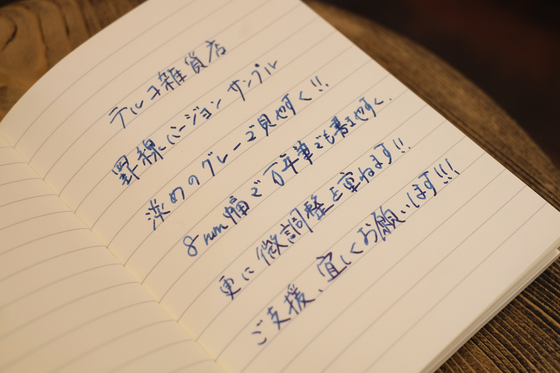 テルヨ雑貨店
罫線バージョン サンプル
淡めのグレーで見やすく!!
8mm幅で万年筆でも書きやすく、
更に微調整を重ねます!!
ご支援、宜しくお願いします!!!